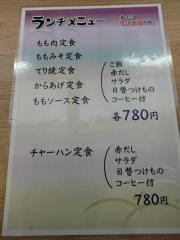 ランチメニュー
もも肉定食
ももみそ定食
てり焼定食
からあげ定食
ももソース定食
ご飯
赤だし
サラダ
日替つけもの
コーヒー付
各780円
チャーハン定食
赤だし
サラダ
日替つけもの
コーヒー付
780円